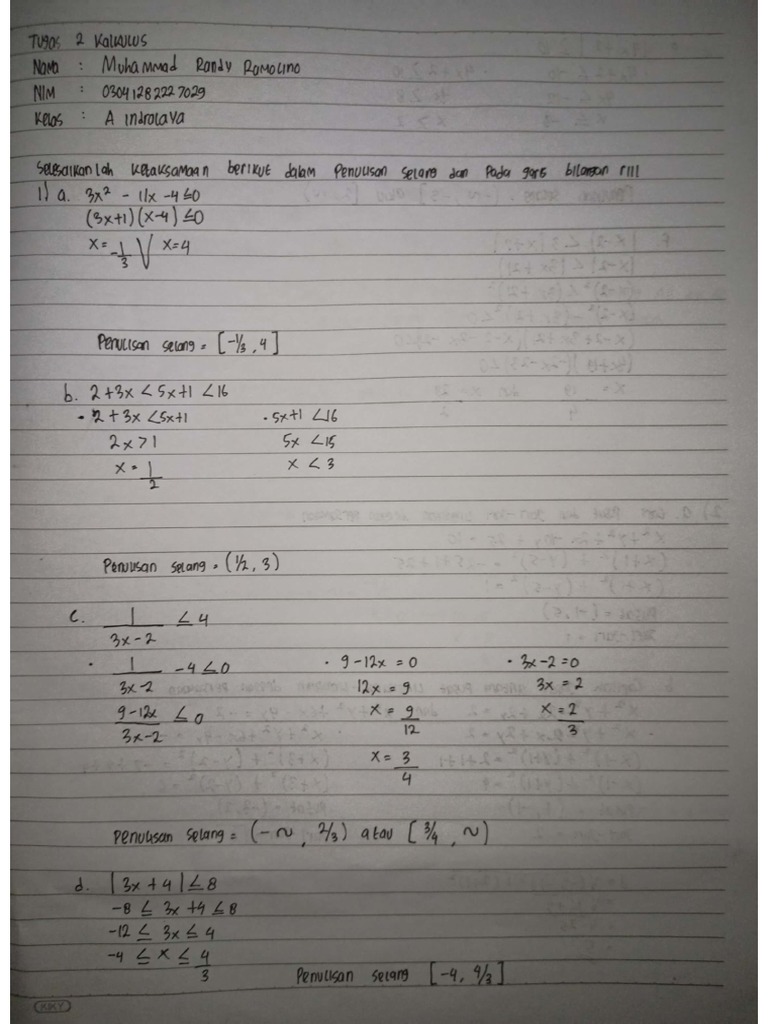 Tugas 2 Kalkulus
Nama : Muhammad Randy Ramolino
NIM : 03041282227029
Kelas : A Indralaya
Selesaikanlah ketaksamaan berikut dalam Penulisan selang dan Pada garis bilangan riil
1) a. 3x² - 11x - 4 ≤ 0
(3x+1)(x-4) ≤ 0
x = -1/3 V x = 4
Penulisan selang = [-1/3, 4]
b. 2+3x < 5x+1 < 16
• 2+3x < 5x+1 • 5x+1 < 16
2x > 1 5x < 15
x = 1/2 x < 3
Penulisan selang = (1/2, 3)
c. 1/(3x-2) ≤ 4
• 1/(3x-2) - 4 ≤ 0 • 9-12x = 0 • 3x-2 = 0
(9-12x)/(3x-2) ≤ 0 12x = 9 3x = 2
x = 9/12 x = 2/3
x = 3/4
Penulisan selang = (-~, 2/3) atau [3/4, ~)
d. |3x + 4| ≤ 8
-8 ≤ 3x+4 ≤ 8
-12 ≤ 3x ≤ 4
-4 ≤ x ≤ 4/3
Penulisan selang [-4, 4/3]
KIKY